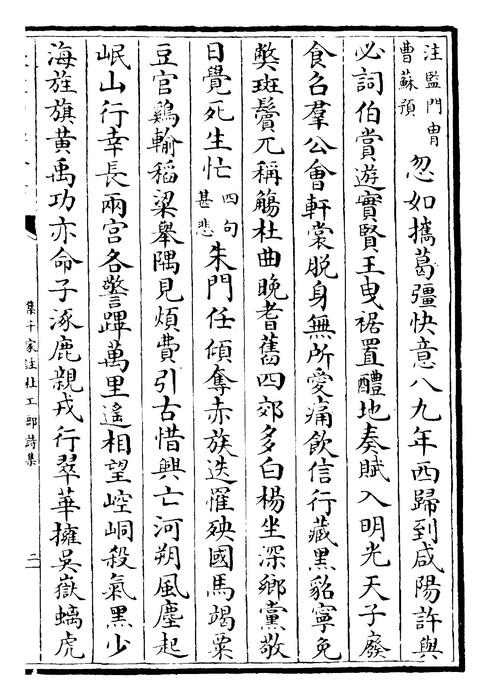 注監門胄
曹蘇預
忽如攜葛彊快意八九年西歸到咸陽許與
必詞伯賞遊實賢王曳裾置醴地奏賦入明光天子廢
食召羣公會軒裳脱身無所愛痛飲信行藏黑貂寧免
弊斑鬢兀稱觴杜曲晚耆舊四郊多白楊坐深鄉黨敬
日覺死生忙
四句
甚悲
朱門任傾奪赤族迭罹殃國馬竭粟
豆官鷄輸稻粱舉隅見煩費引古惜興亡河朔風塵起
岷山行幸長兩宮各警蹕萬里遥相望崆峒殺氣黑少
海旌旗黄禹功亦命子涿鹿親戎行翠華擁吳嶽螭虎
集千家註杜工部詩集
二